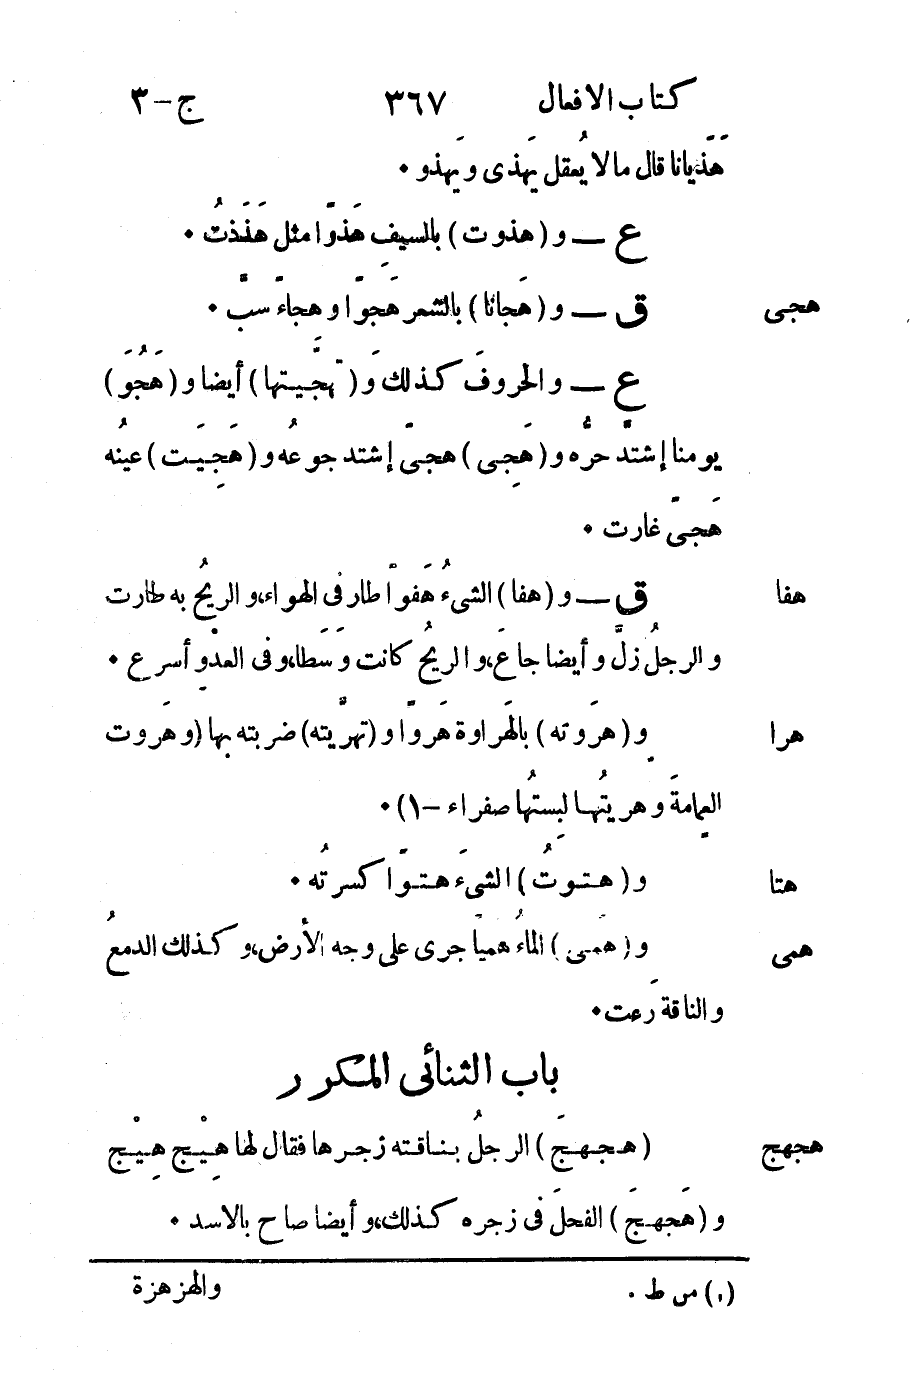 كتاب الافعال ٣٦٧ ج-٣
هَذَيانا قال ما لا يُعقل يَهذى و يَهذو ٠
ع — و (هذوت) بالسيفِ هَذَوًا مثل هَذَذتُ ٠
هجى ق — و (هَجانا) بالشعر هَجوًا و هجاءً سبّ ٠
ع — و الحروفَ كذلك و (تهجَّيتها) أيضا و (هَجُوَ)
يومنا إشتدّ حرُّه و (هَجِى) هجىً إشتد جوعُه و (هَجِيَت) عينُه
هَجىً غارت ٠
هفا ق — و (هفا) الشىءُ هَفوًا طار فى الهواء، و الريحُ به طارت
و الرجلُ زلّ و أيضا جاعَ، و الريحُ كانت وَسَطا، و فى العدْو أسرع ٠
هرا و (هرَوته) بالهَراوة هَروًا و (تهرّيته) ضربته بها (و هَروت
العِمامةَ و هريتُها لبستُها صفراء -١) ٠
هتا و (هتوتُ) الشىءَ هتوًا كسرتُه ٠
همى و (هَمَى) الماءُ هميًا جرى على وجه الأرض، و كذلك الدمعُ
و الناقة رَعت ٠
باب الثنائى المكرر
هجهج (هجهجَ) الرجلُ بناقته زجرها فقال لها هِيْج هِيْج
و (هَجهجَ) الفحلَ فى زجره كذلك، و أيضا صاح بالاسد ٠
(١) من ط ٠ والهزهزة